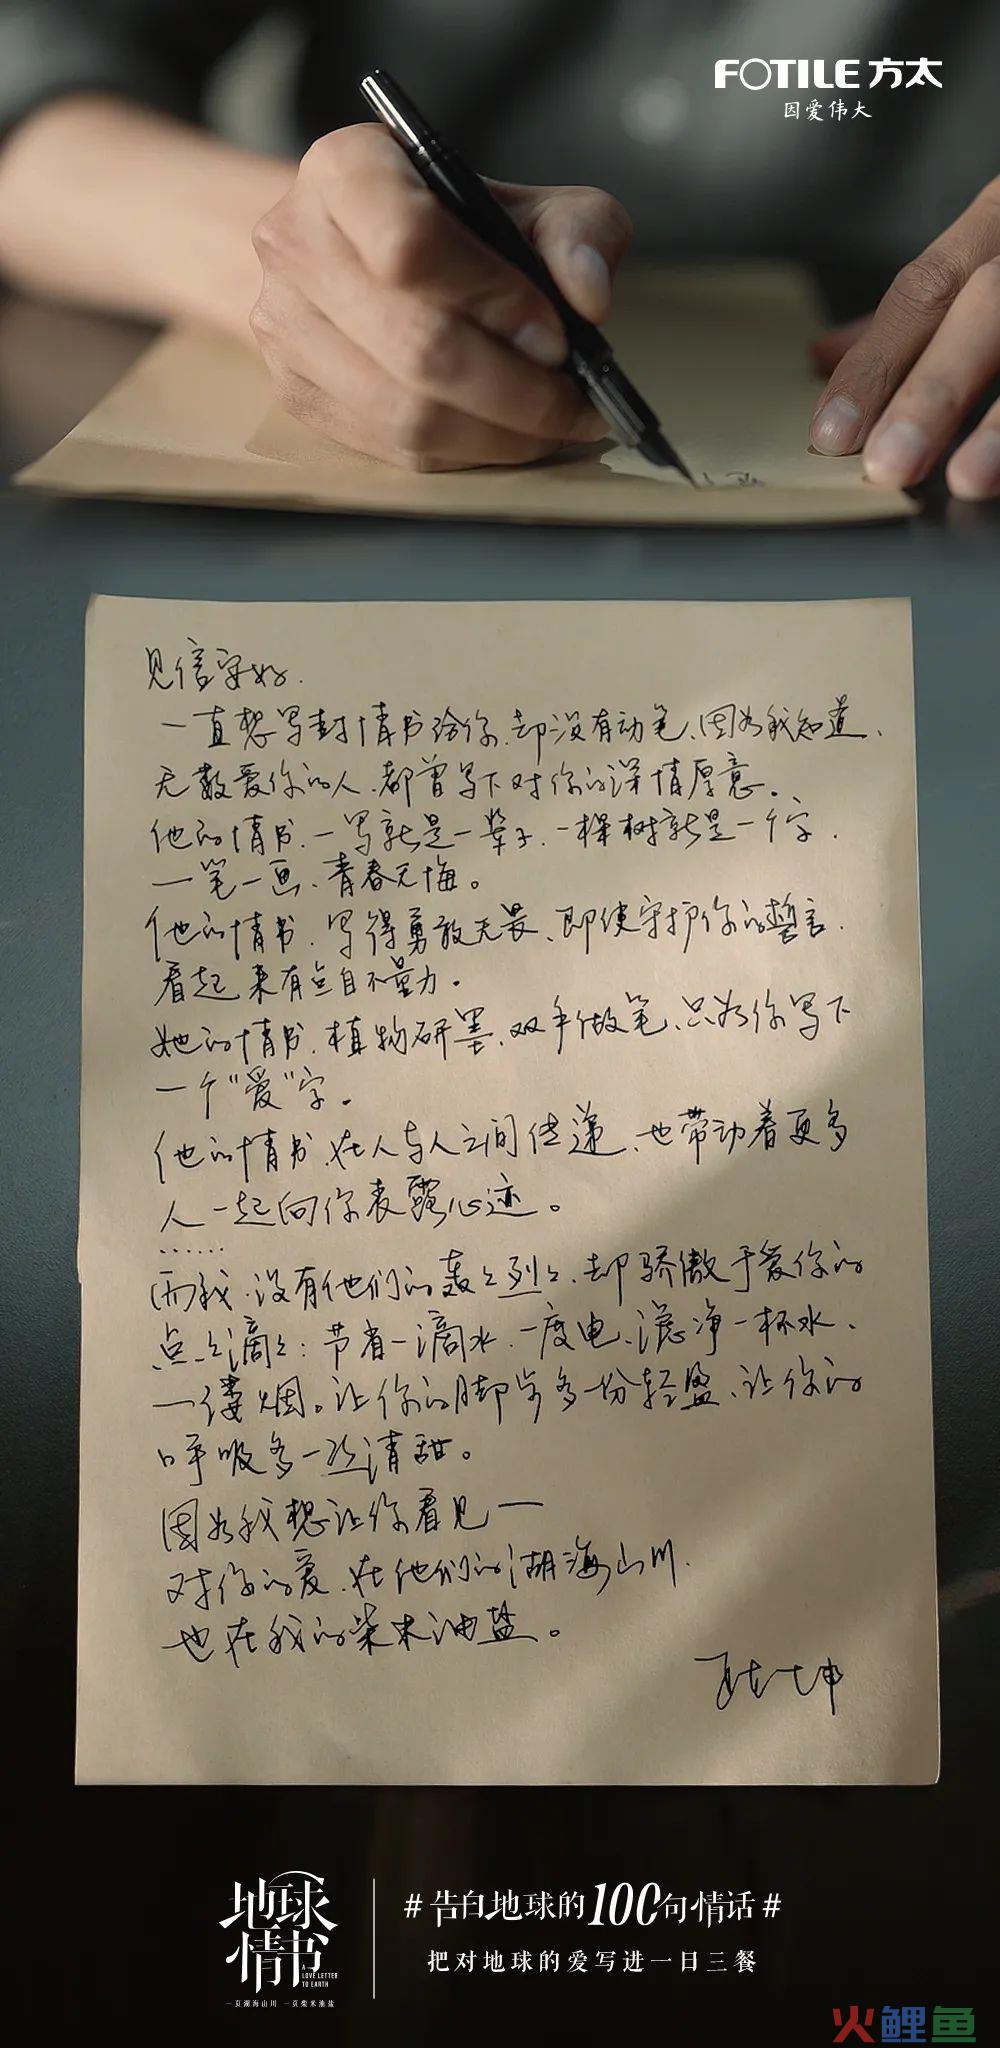 FOTILE 方太
因爱伟大
见信安好.
一直想写封情书给你,却没有动笔、因为我知道,
无数爱你的人,都曾写下对你的深情厚意。
他的情书,一写就是一辈子,一棵树就是一个字,
一笔一画、青春无悔。
他的情书,写得勇敢无畏、即使守护你的誓言,
看起来有点自不量力。
她的情书,植物研墨、双手做笔、只为你写下
一个“爱”字。
他的情书,在人与人之间传递、也带动着更多
人一起向你表露心迹。
......
而我,没有他们的轰々烈々,却骄傲于爱你的
点々滴々:节省一滴水,一度电、滤净一杯水、
一缕烟。让你的脚步多一份轻盈、让你的
呼吸多一丝清甜。
因为我想让你看见—
对你的爱,在他们的湖海山川,
也在我的柴米油盐。
地球
情书
A
LOVE LETTER
TO EARTH
一页湖海山川 一页柴米油盐
#告白地球的100句情话#
把对地球的爱写进一日三餐
火鲤鱼